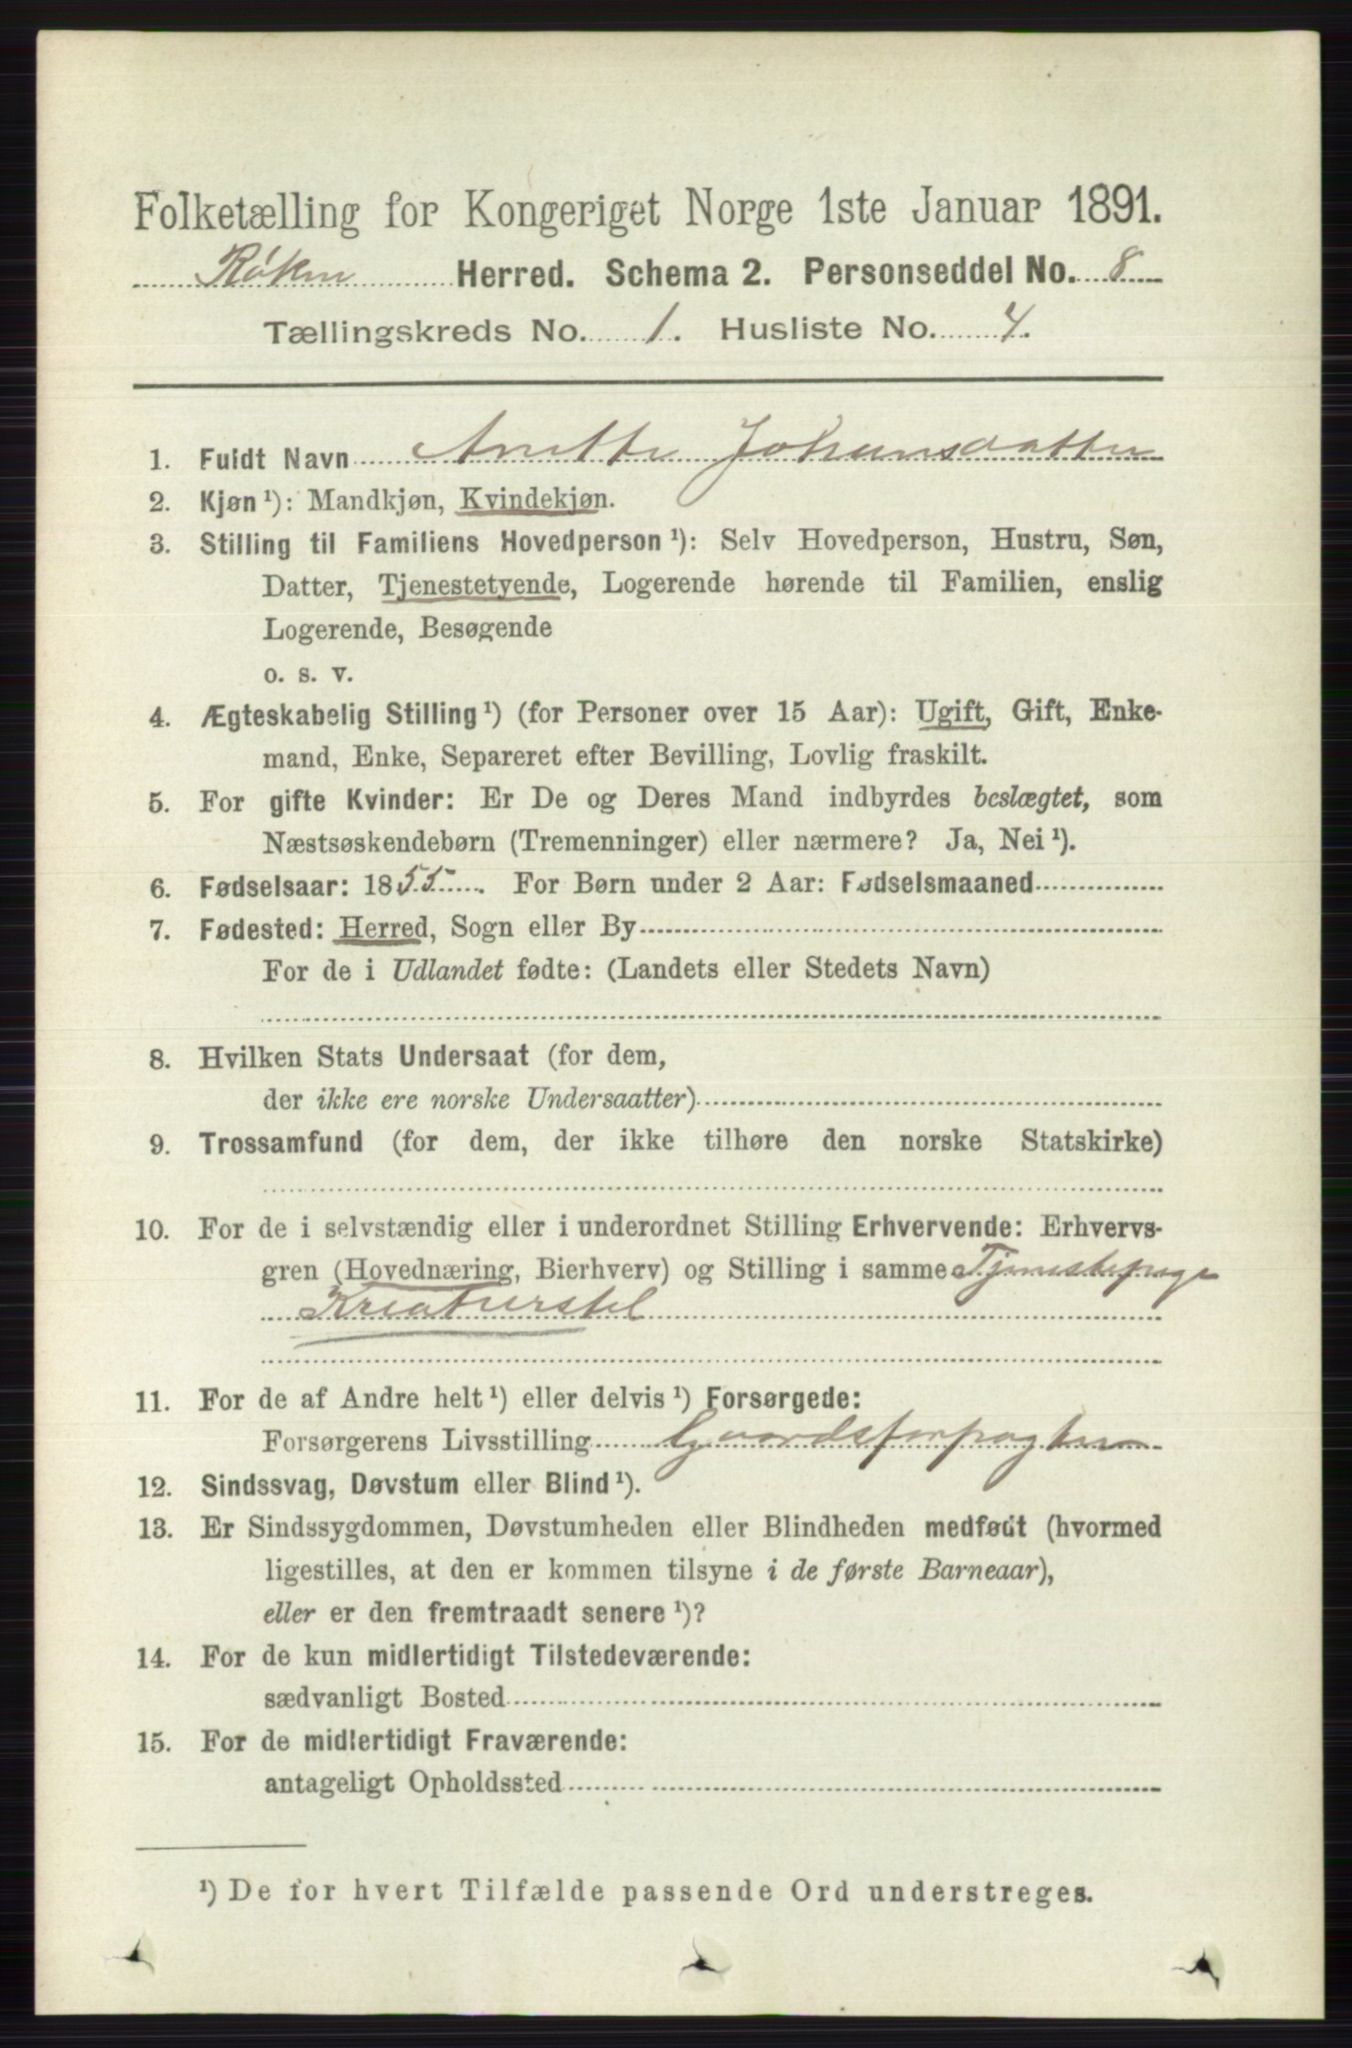 Folketælling for Kongeriget Norge 1ste Januar 1891.
Røken Herred. Schema 2. Personseddel No. 8
Tællingskreds No. 1. Husliste No. 4.
1. Fuldt Navn Anette Johansdatter
2. Kjøn ¹): Mandkjøn, Kvindekjøn.
3. Stilling til Familiens Hovedperson ¹): Selv Hovedperson, Hustru, Søn,
Datter, Tjenestetyende, Logerende hørende til Familien, enslig
Logerende, Besøgende
o. s. v.
4. Ægteskabelig Stilling ¹) (for Personer over 15 Aar): Ugift, Gift, Enke-
mand, Enke, Separeret efter Bevilling, Lovlig fraskilt.
5. For gifte Kvinder: Er De og Deres Mand indbyrdes beslægtet, som
Næstsøskendebørn (Tremenninger) eller nærmere? Ja, Nei ¹).
6. Fødselsaar: 1855. For Børn under 2 Aar: Fødselsmaaned
7. Fødested: Herred, Sogn eller By
For de i Udlandet fødte: (Landets eller Stedets Navn)
8. Hvilken Stats Undersaat (for dem,
der ikke ere norske Undersaatter)
9. Trossamfund (for dem, der ikke tilhøre den norske Statskirke)
10. For de i selvstændig eller i underordnet Stilling Erhvervende: Erhvervs-
gren (Hovednæring, Bierhverv) og Stilling i samme Tjenestepige
Kreaturstel
11. For de af Andre helt ¹) eller delvis ¹) Forsørgede:
Forsørgerens Livsstilling Gaardsforpagter
12. Sindssvag, Døvstum eller Blind ¹).
13. Er Sindssygdommen, Døvstumheden eller Blindheden medfødt (hvormed
ligestilles, at den er kommen tilsyne i de første Barneaar),
eller er den fremtraadt senere ¹)?
14. For de kun midlertidigt Tilstedeværende:
sædvanligt Bosted
15. For de midlertidigt Fraværende:
antageligt Opholdssted
¹) De for hvert Tilfælde passende Ord understreges.